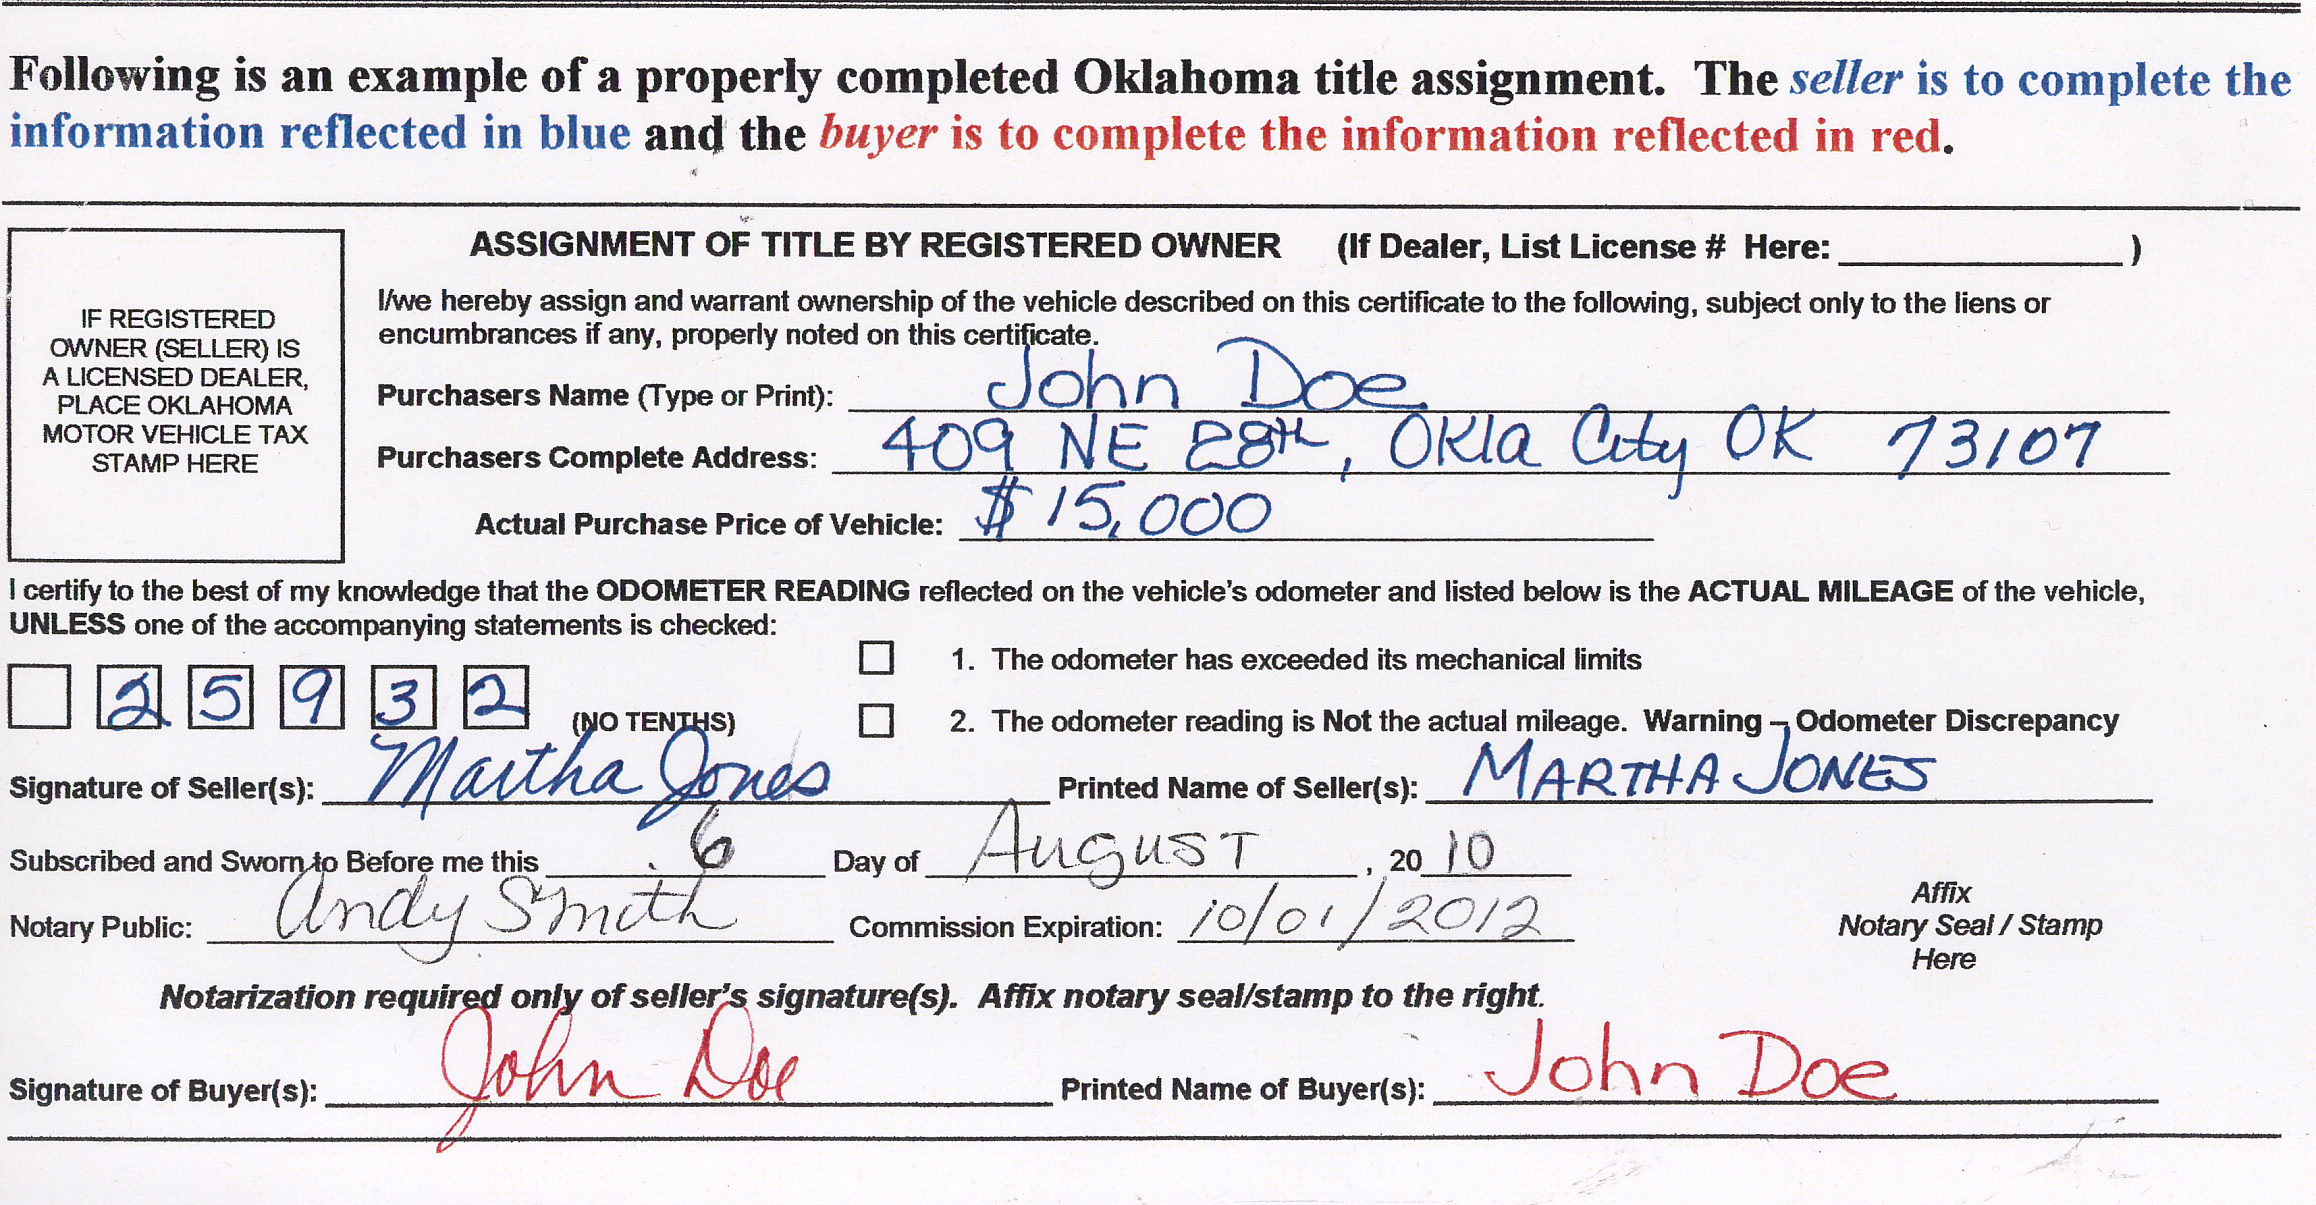 Following is an example of a properly completed Oklahoma title assignment. The seller is to complete the
information reflected in blue and the buyer is to complete the information reflected in red.
IF REGISTERED
OWNER (SELLER) IS
A LICENSED DEALER,
PLACE OKLAHOMA
MOTOR VEHICLE TAX
STAMP HERE
ASSIGNMENT OF TITLE BY REGISTERED OWNER (If Dealer, List License # Here: )
I/we hereby assign and warrant ownership of the vehicle described on this certificate to the following, subject only to the liens or
encumbrances if any, properly noted on this certificate.
Purchasers Name (Type or Print): John Doe
Purchasers Complete Address: 409 NE 28th, Okla City OK 73107
Actual Purchase Price of Vehicle: $15,000
I certify to the best of my knowledge that the ODOMETER READING reflected on the vehicle's odometer and listed below is the ACTUAL MILEAGE of the vehicle,
UNLESS one of the accompanying statements is checked:
1. The odometer has exceeded its mechanical limits
2 5 9 3 2 (NO TENTHS) 2. The odometer reading is Not the actual mileage. Warning – Odometer Discrepancy
Signature of Seller(s): Martha Jones Printed Name of Seller(s): MARTHA JONES
Subscribed and Sworn to Before me this 6 Day of August, 20 10
Notary Public: Andy Smith Commission Expiration: 10/01/2012
Affix
Notary Seal / Stamp
Here
Notarization required only of seller's signature(s). Affix notary seal/stamp to the right.
Signature of Buyer(s): John Doe Printed Name of Buyer(s): John Doe